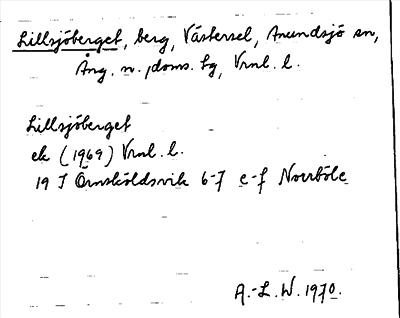 Lillsjöberget, berg, Västersel, Anundsjö sn,
Ång. n. ,doms. tg, Vrnl. l.
Lillsjöberget
ek (1969) Vrnl. l.
19 J Örnsköldsvik 6-7 e-f Norrböle
A.-L. W. 1970.